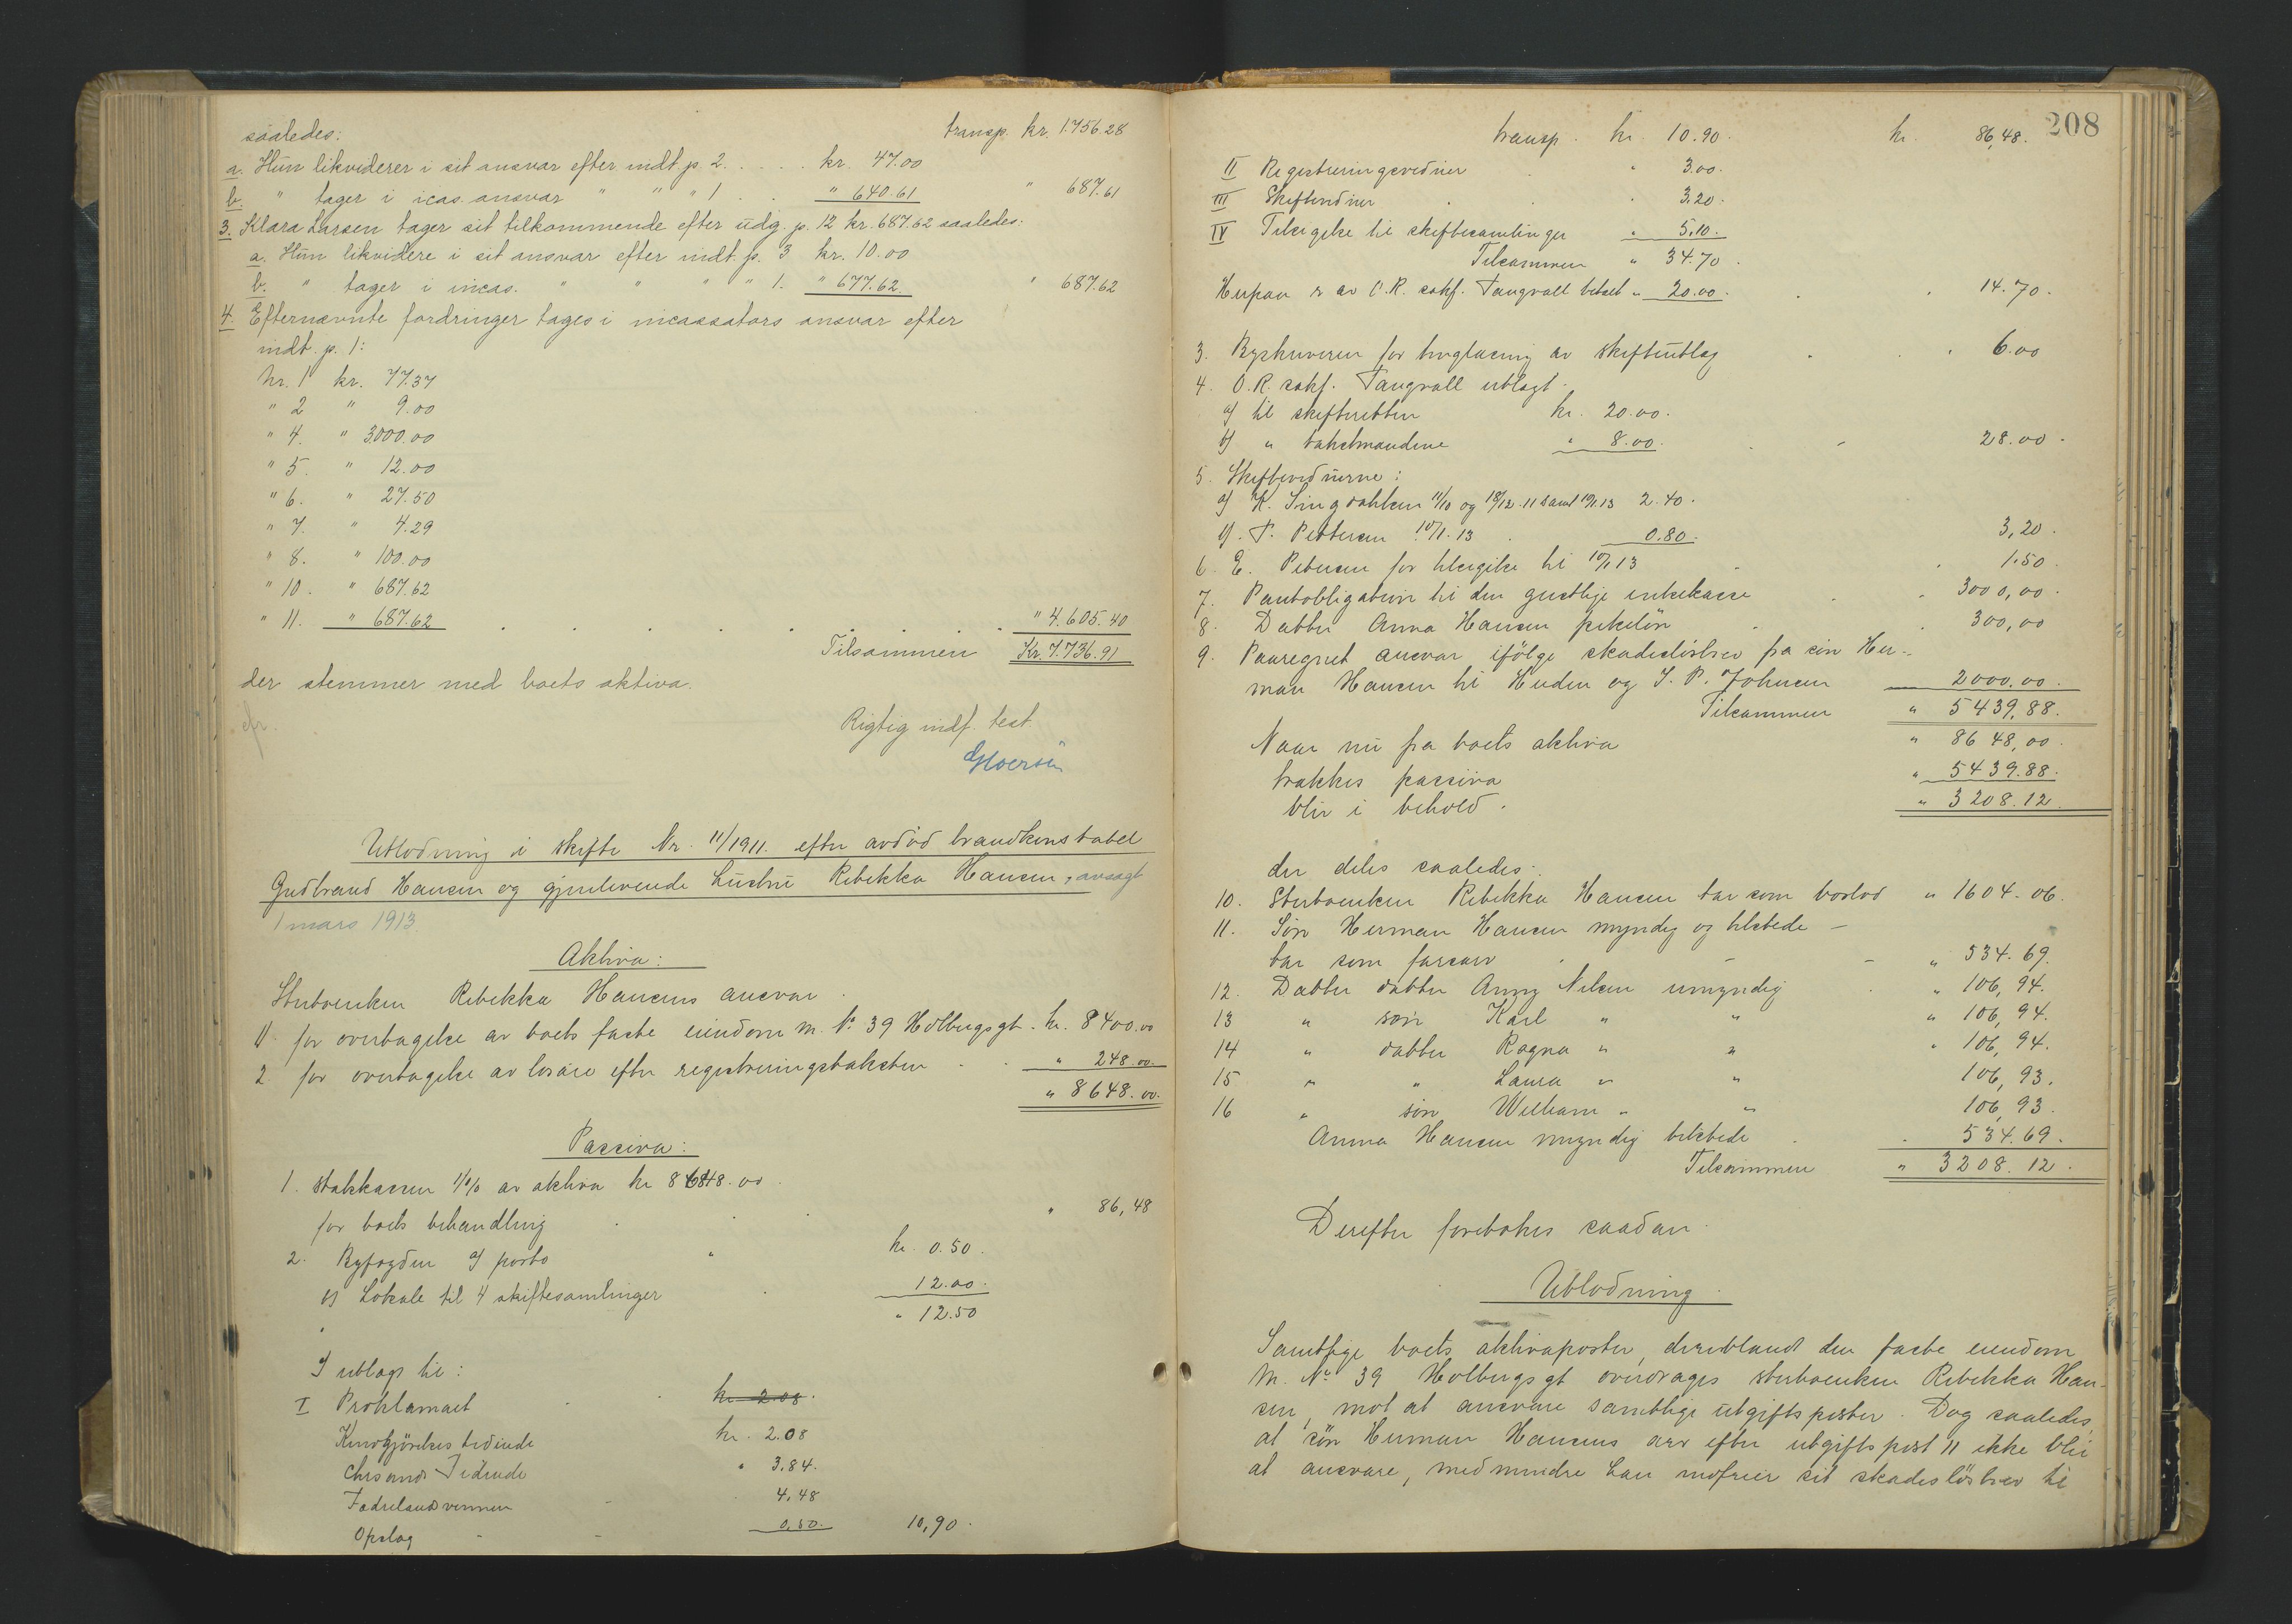 saaledes: transp. kr. 1.756.28
a. Hun likviderer i sit ansvar efter indt. p. 2. . . . . kr. 47.00
b. " tager i icas. ansvar " " " 1 . . " 640.61 " 687.61
3. Klara Larsen tager sit tilkommende efter udg. p. 12 kr. 687.62 saaledes:
a. Hun likvidere i sit ansvar efter indt. p. 3 kr. 10.00
b. " tager i incas. " " " " 1. " 677.62 " 687.62
4. Efternævnte fordringer tages i incassators ansvar efter
indt. p. 1:
Nr. 1 kr. 77.37
" 2 " 9.00
" 4. " 3000.00
" 5. " 12.00
" 6. " 27.50
" 7. " 4.29
" 8. " 100.00
" 10. " 687.62
" 11. " 687.62 . . . . . . . . " 4.605.40
Tilsammen Kr. 7.736.91
der stemmer med boets aktiva.
Rigtig indf. test.
Utlodning i skifte Nr. 11/1911. efter avdöd brandkonstabel
Gudbrand Hansen og gjenlevende hustru Rebekka Hansen, avsagt
1 mars 1913.
Aktiva:
Sterboenken Rebekka Hansens ansvar.
1. for overtagelse av boets faste eiendom m. No 39 Holbergsgt. kr. 8400.00
2. for overtagelse av løsøre efter registreringstaksten . . " 248.00.
" 8648.00.
Passiva:
1. statkassen 1% av aktiva kr 8648.00
for boets behandling . . . " 86,48
2. Byfogden a) porto " kr. 0.50.
b) Lokale til 4 skiftesamlinger . 12.00.
" 12.50
I utlagt til:
I Proklamaet . kr 2.08.
Kundgjörelses tidende kr. 2.08
Chrsands Tidende " 3.84.
Fædrelandsvennen 4,48
Opslag - - 0,50. 10,90.
208
transp. kr. 10.90. kr. 86,48.
II Registreringsvidner . " 3.00.
III Skiftevidner . . " 3.20.
IV Tilsigelse til skiftesamlinger " 5.10.
Tilsammen " 34.70.
Herpaa er av O.R. sakf. Tangvall betalt " 20.00. . " 14.70.
3. Byskriveren for tinglæsning av skifteutlæg . . " 6.00
4. O.R. sakf. Tangvall utlagt.
a) til skifteretten kr. 20.00.
b) " takstmændene " 8.00. . - 28.00.
5. Skiftevidnerne:
a) K. Singdahlsen 11/10 og 18/12.11 samt 10/1.13 2.40.
b). T. Pettersen 10/1.13 . 0.80. 3,20.
6. E. Petersen for tilsigelse til 10/1 13 - . 1.50.
7. Pantobligation til den geistlige enkekasse . . 3000,00.
8. Datter Anna Hansen pikelön . . 300,00
9. Paaregnet ansvar ifölge skadeslösbrev fra sön Her-
man Hansen til Heuden og I. P. Johnsen 2000.00.
Tilsammen " 5439,88.
Naar nu fra boets aktiva " 8648,00.
trækkes passiva " 5439.88.
blir i behold. " 3208.12.
der deles saaledes:
10. Sterboenken Rebekka Hansen tar som boslod " 1604.06.
11. Sön Herman Hansen myndig og tilstede -
tar som farsarv . - - " 534.69.
12. Datter datter Anny Nilsen umyndig . " 106,94.
13 " sön Karl " " " 106,94.
14 " datter Ragna " " " 106,94.
15 " " Laura " " 106,93.
16 " sön William " " 106,93.
Anna Hansen myndig tilstede . . 534.69.
Tilsammen " 3208.12.
Derefter foretokes saadan.
Utlodning.
Samtlige boets aktivaposter, deriblandt den faste eiendom
M. No 39 Holbergsgt overdrages sterboenken Rebekka Han-
sen, mot at ansvare samtlige utgiftsposter. Dog saaledes,
at sön Herman Hansens arv efter utgiftspost 11 ikke blir
at ansvare, medmindre han indfrier sit skadeslösbrev til